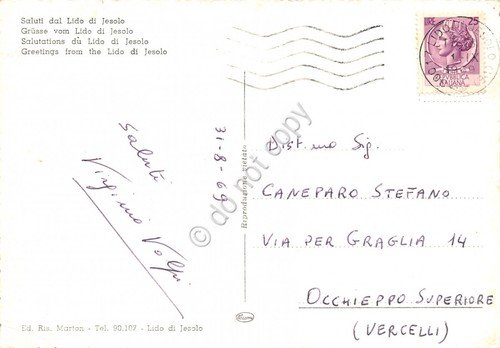 Saluti dal Lido di Jesolo
Grüsse vom Lido di Jesolo
Salutations du Lido di Jesolo
Greetings from the Lido di Jesolo
Saluti
Virginio Volpi
31-8-69
Ed. Ris. Marton - Tel. 90.107 - Lido di Jesolo
Riproduzione vietata
do not copy
25
Dist.mo Sig.
CANEPARO STEFANO
VIA PER GRAGLIA 14
OCCHIEPPO SUPERIORE
(VERCELLI)